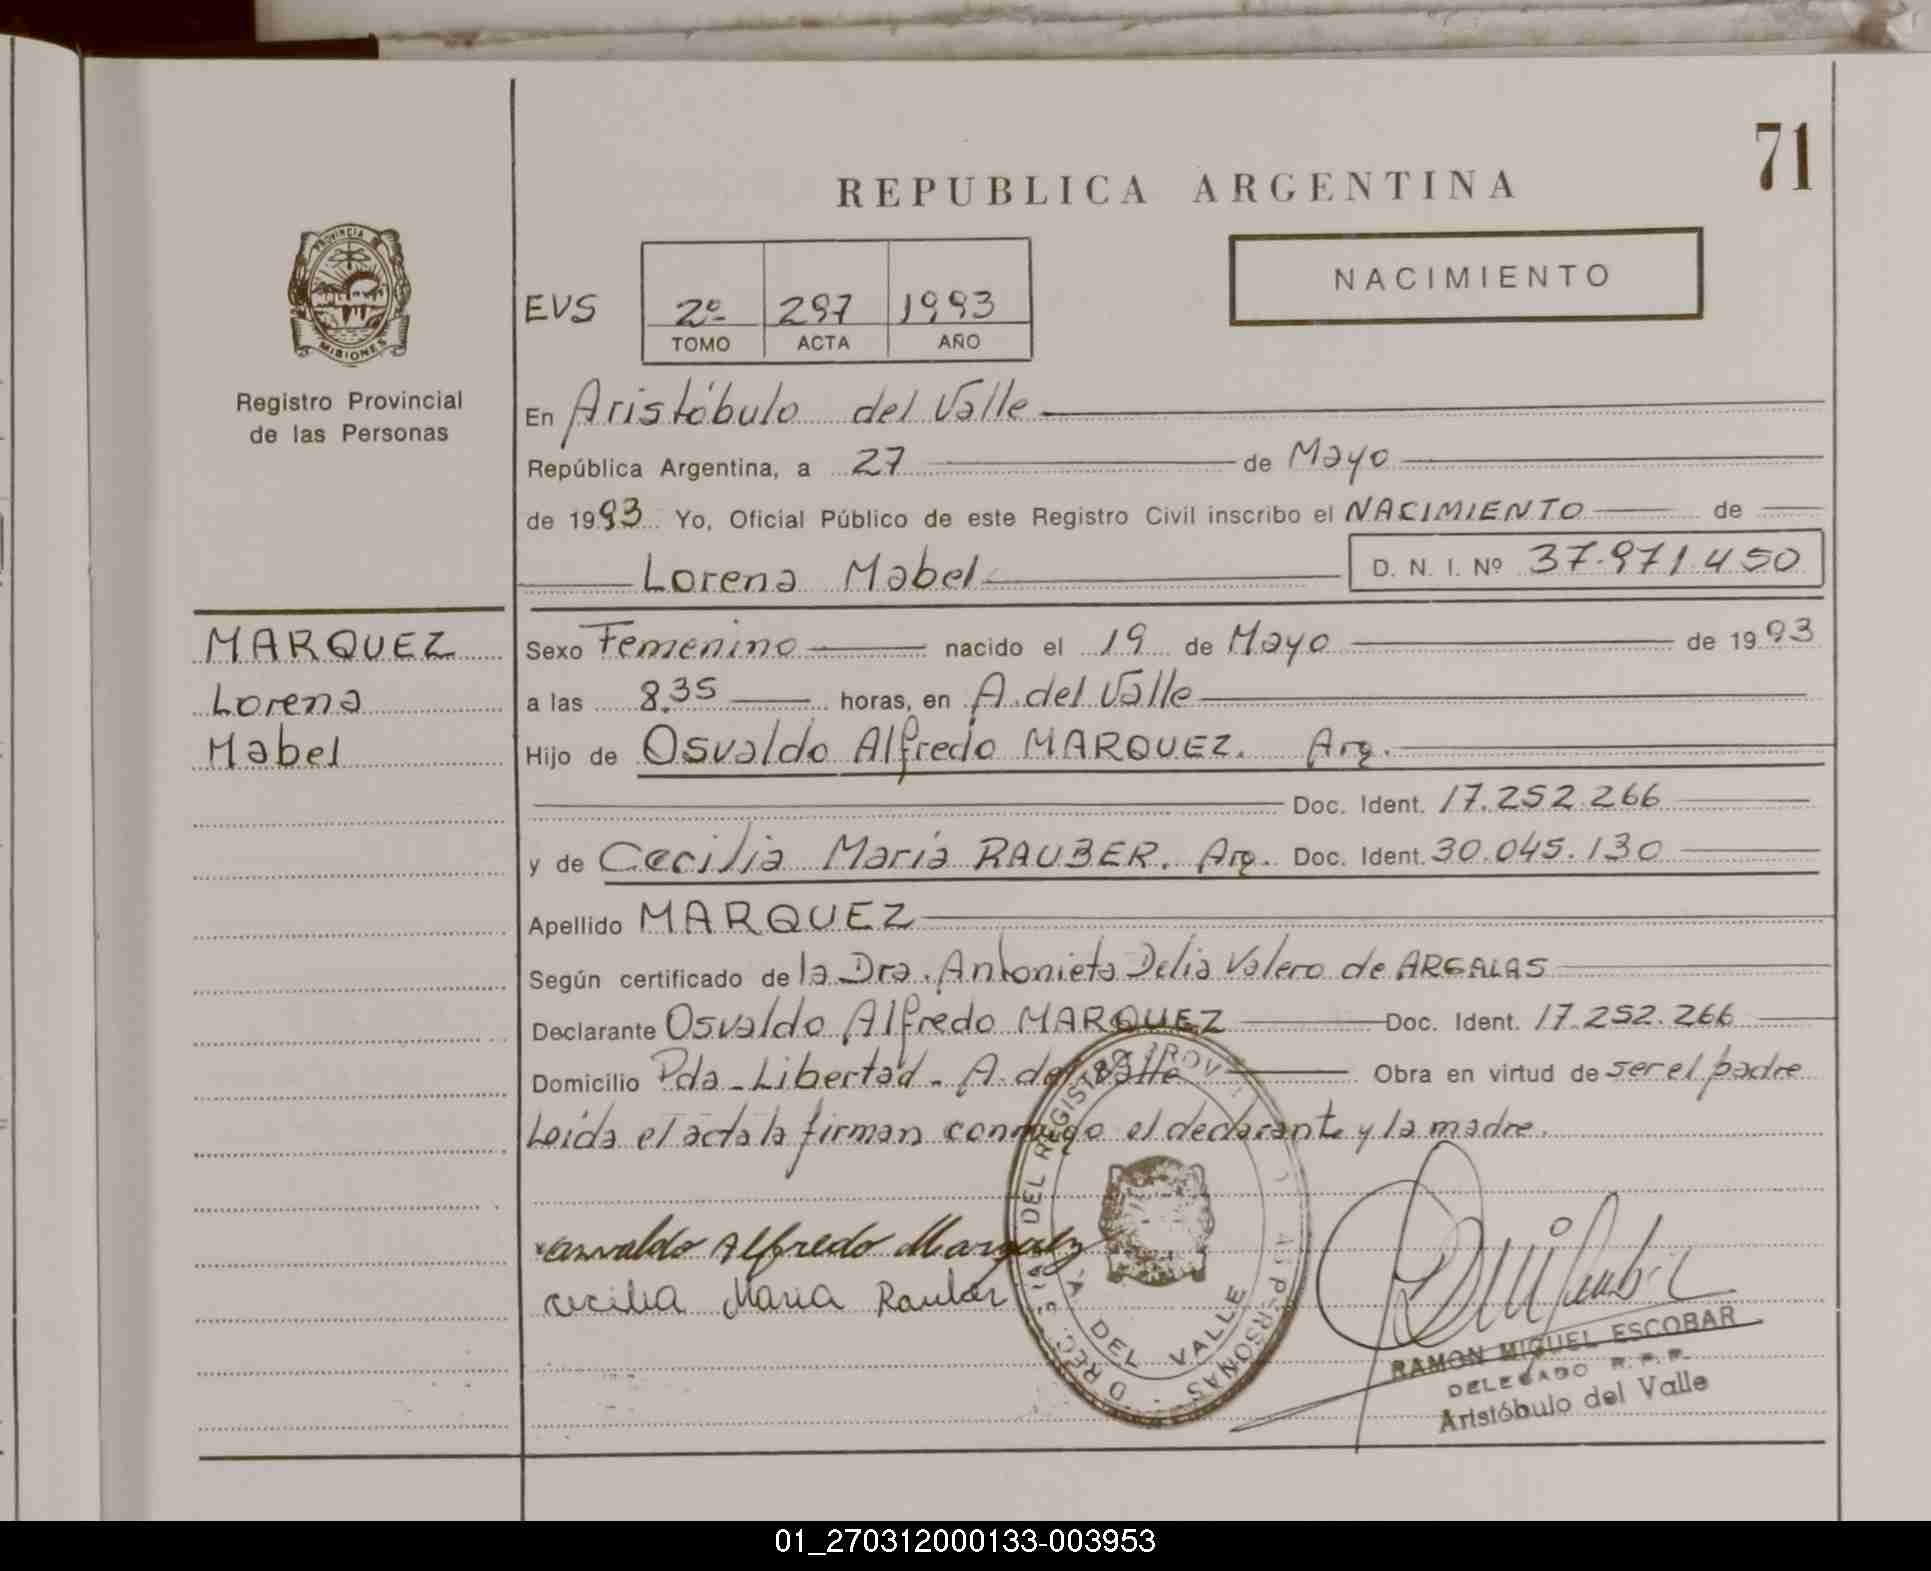 71
REPUBLICA ARGENTINA
PROVINCIA DE
MISIONES
Registro Provincial
de las Personas
NACIMIENTO
EVS 2º 297 1993
TOMO ACTA AÑO
En Aristóbulo del Valle
República Argentina, a 27 de Mayo
de 1993 Yo, Oficial Público de este Registro Civil inscribo el NACIMIENTO de
Lorena Mabel D. N. I. Nº 37.971.450
MARQUEZ
Lorena
Mabel
Sexo Femenino nacido el 19 de Mayo de 1993
a las 8.35 horas, en A. del Valle
Hijo de Osvaldo Alfredo MARQUEZ. Arg.
Doc. Ident. 17.252.266
y de Cecilia María RAUBER. Arg. Doc. Ident. 30.045.130
Apellido MARQUEZ
Según certificado de la Dra. Antonieta Delia Valero de ARGALAS
Declarante Osvaldo Alfredo MARQUEZ Doc. Ident. 17.252.266
Domicilio Pda. Libertad - A. del Valle Obra en virtud de ser el padre
Leída el acta la firman conmigo el declarante y la madre.
Osvaldo Alfredo Marquez
cecilia Maria Rauber
DEL REGISTRO PROV
PERSONAS
DEL VALLE
RAMON MIGUEL ESCOBAR
DELEGADO R.P.P.
Aristóbulo del Valle
01_270312000133-003953